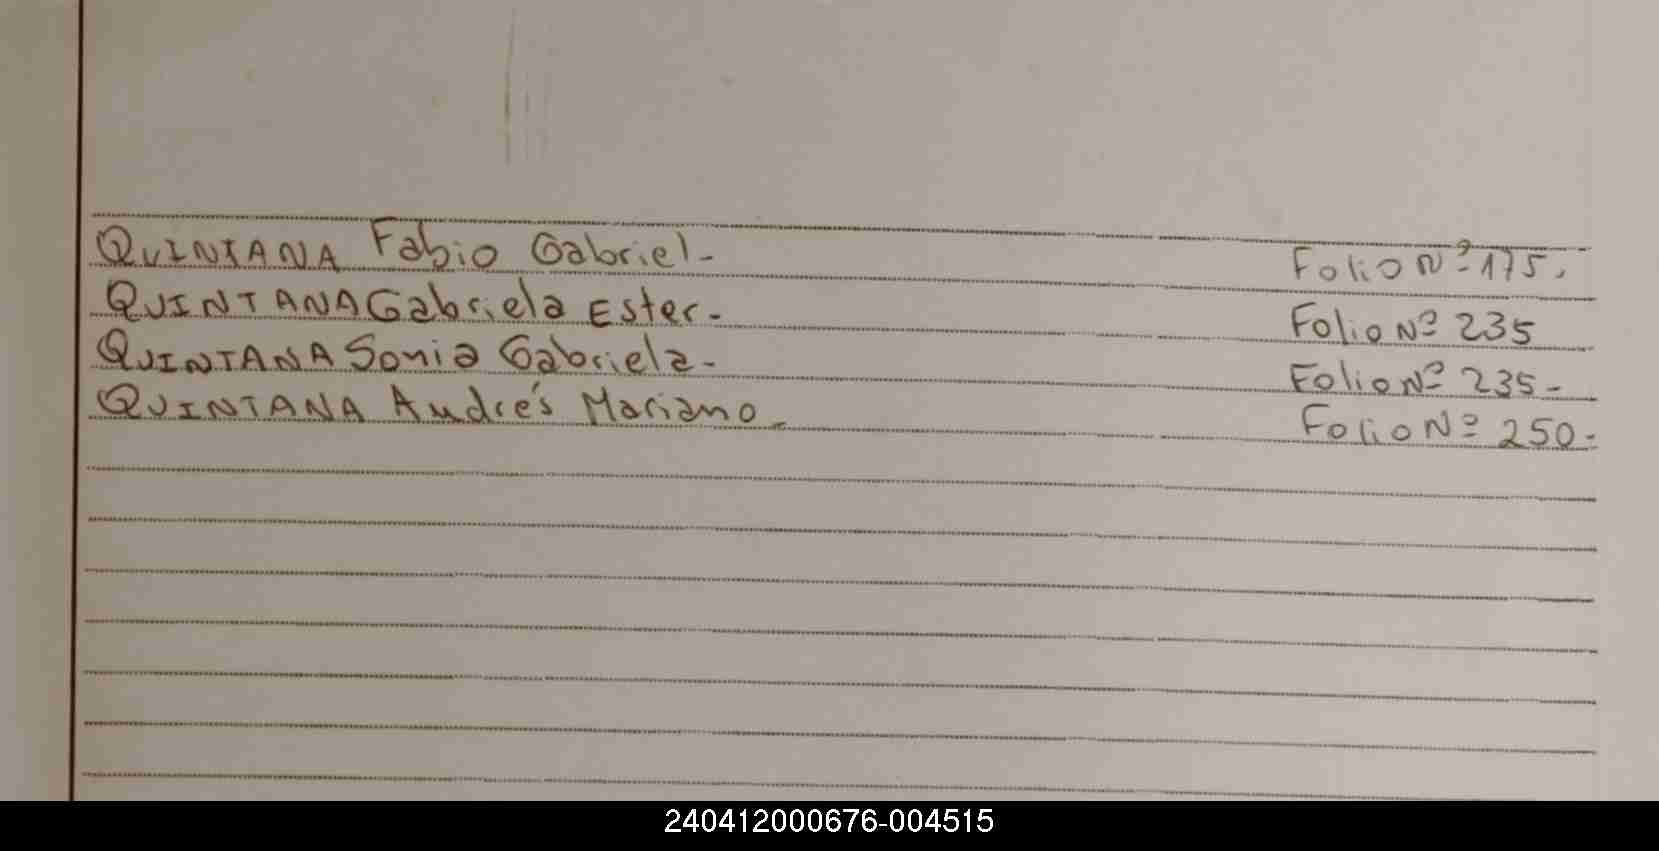 QUINTANA Fabio Gabriel- Folio Nº 175.
QUINTANA Gabriela Ester- Folio Nº 235
QUINTANA Sonia Gabriela- Folio Nº 235-
QUINTANA Andrés Mariano- Folio Nº 250-
240412000676-004515